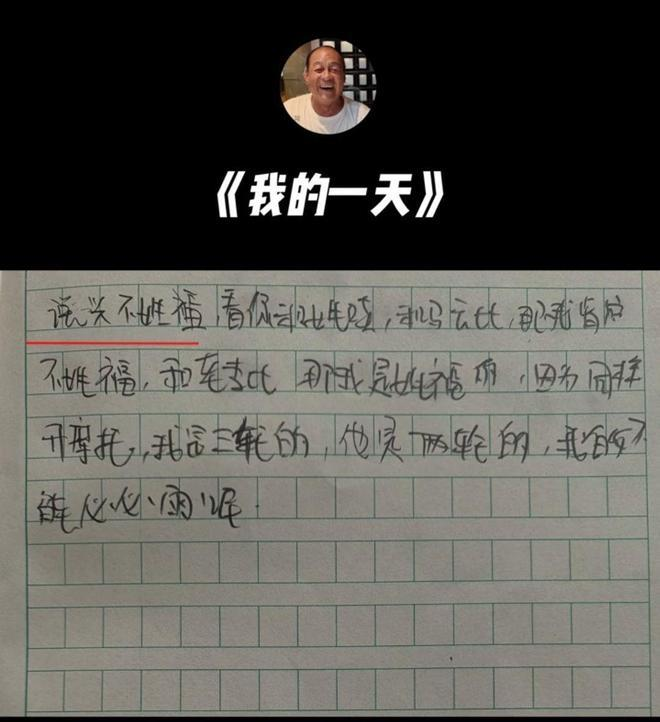 《我的一天》
说兴不姓福,看你和比,和马云比,那我肯定
不姓福,和车老比 那我是姓福的,因为同样
开摩托,我是三轮的,他是两轮的,我的
能必必雨呢.